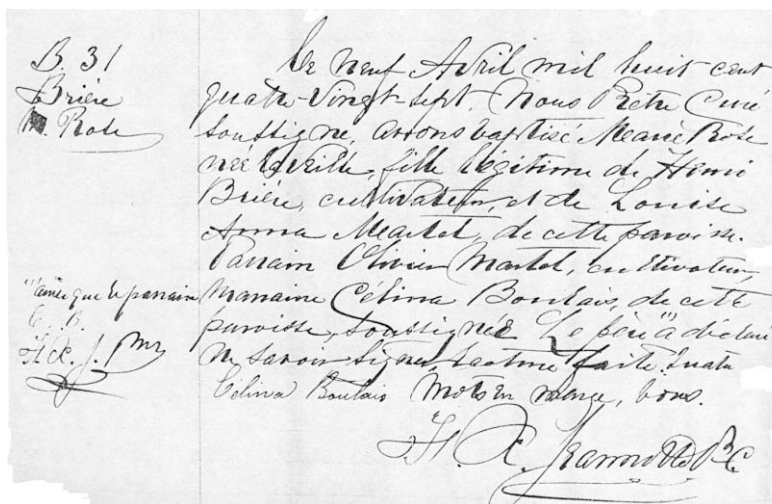 B. 31
Brière
M. Rose
Le neuf Avril mil huit cent
quatre-vingt-sept, Nous Prêtre Curé
soussigné, avons baptisé Marie Rose
née la veille, fille légitime de Henri
Brière, cultivateur, et de Louise
Anna Martel, de cette paroisse.
Parrain Olivier Martel, cultivateur,
Marraine Célina Boulais, de cette
paroisse, soussignée. Le père " a déclaré
ne savoir signer, lecture faite. Quatre
Célina Boulais Mots en marge, bons.
" ainsi que le parrain
C. B.
H. X. J. Ptre
H. X. Jeannotte Ptre C.